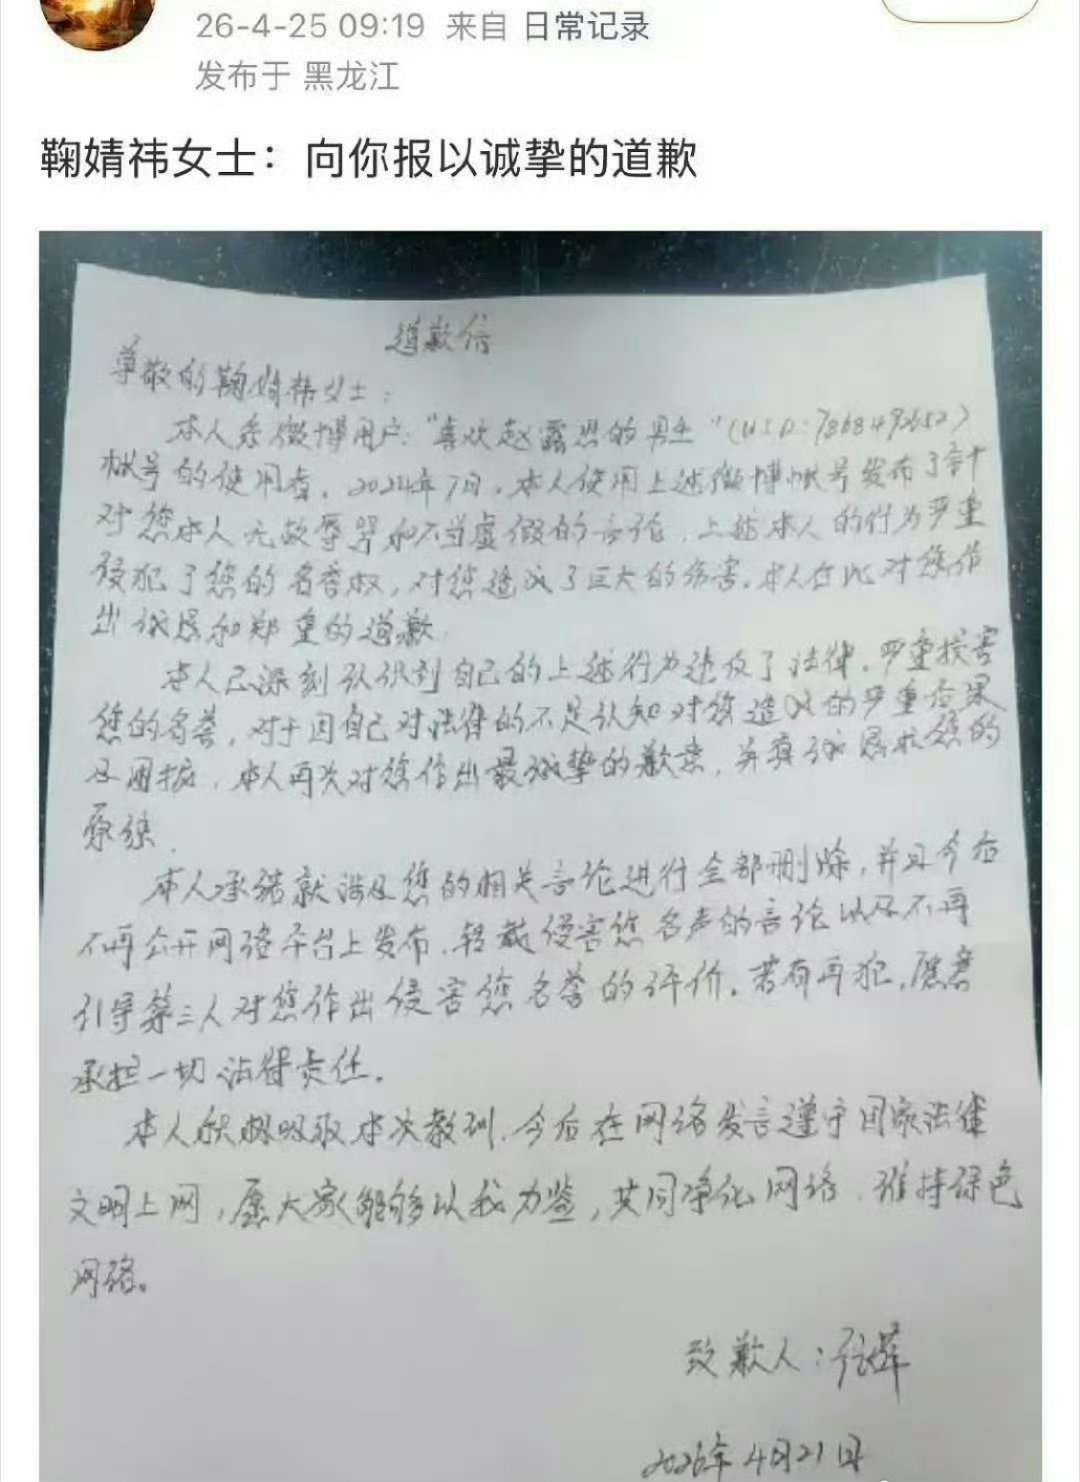 26-4-25 09:19 来自 日常记录
发布于 黑龙江
鞠婧祎女士：向你报以诚挚的道歉
道歉信
尊敬的鞠婧祎女士：
本人系微博用户："喜欢赵露思的男生"(USD:7868492652)
帐号的使用者。2024年7月，本人使用上述微博帐号发布了
对您本人无故辱骂和不当虚假的言论，上述本人的行为严重
侵犯了您的名誉权，对您造成了巨大的伤害。本人在此对您作
出诚恳和郑重的道歉
本人已深刻认识到自己的上述行为违反了法律，严重损害
您的名誉，对于因自己对法律的不足认知对您造成的严重后果
及困扰，本人再次对您作出最诚挚的歉意，并真诚恳求您的
原谅.
本人承诺就涉及您的相关言论进行全部删除，并且今后
不再公开网络平台上发布、转载侵害您名声的言论以及不再
引导第三人对您作出侵害您名誉的评价。若有再犯，愿意
承担一切法律责任。
本人积极吸取本次教训，今后在网络发言遵守国家法律
文明上网，愿大家能够以我为鉴，共同净化网络，维持绿色
网络。
致歉人：张
2026年4月21日